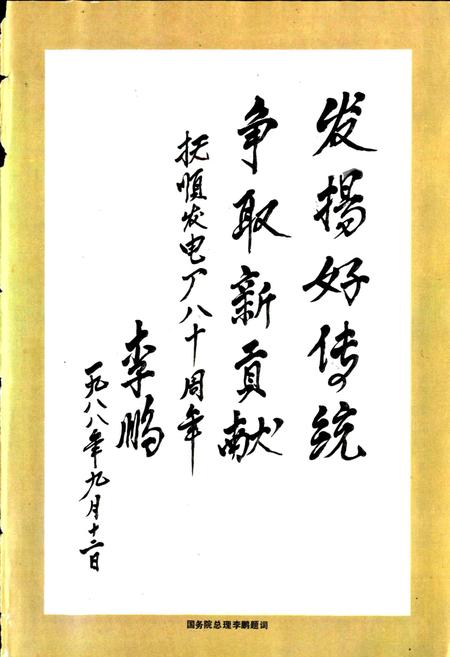 发揚好传统
争取新貢献
抚順发电厂八十周年
李鹏
一九八八年九月十二日
国务院总理李鹏题词